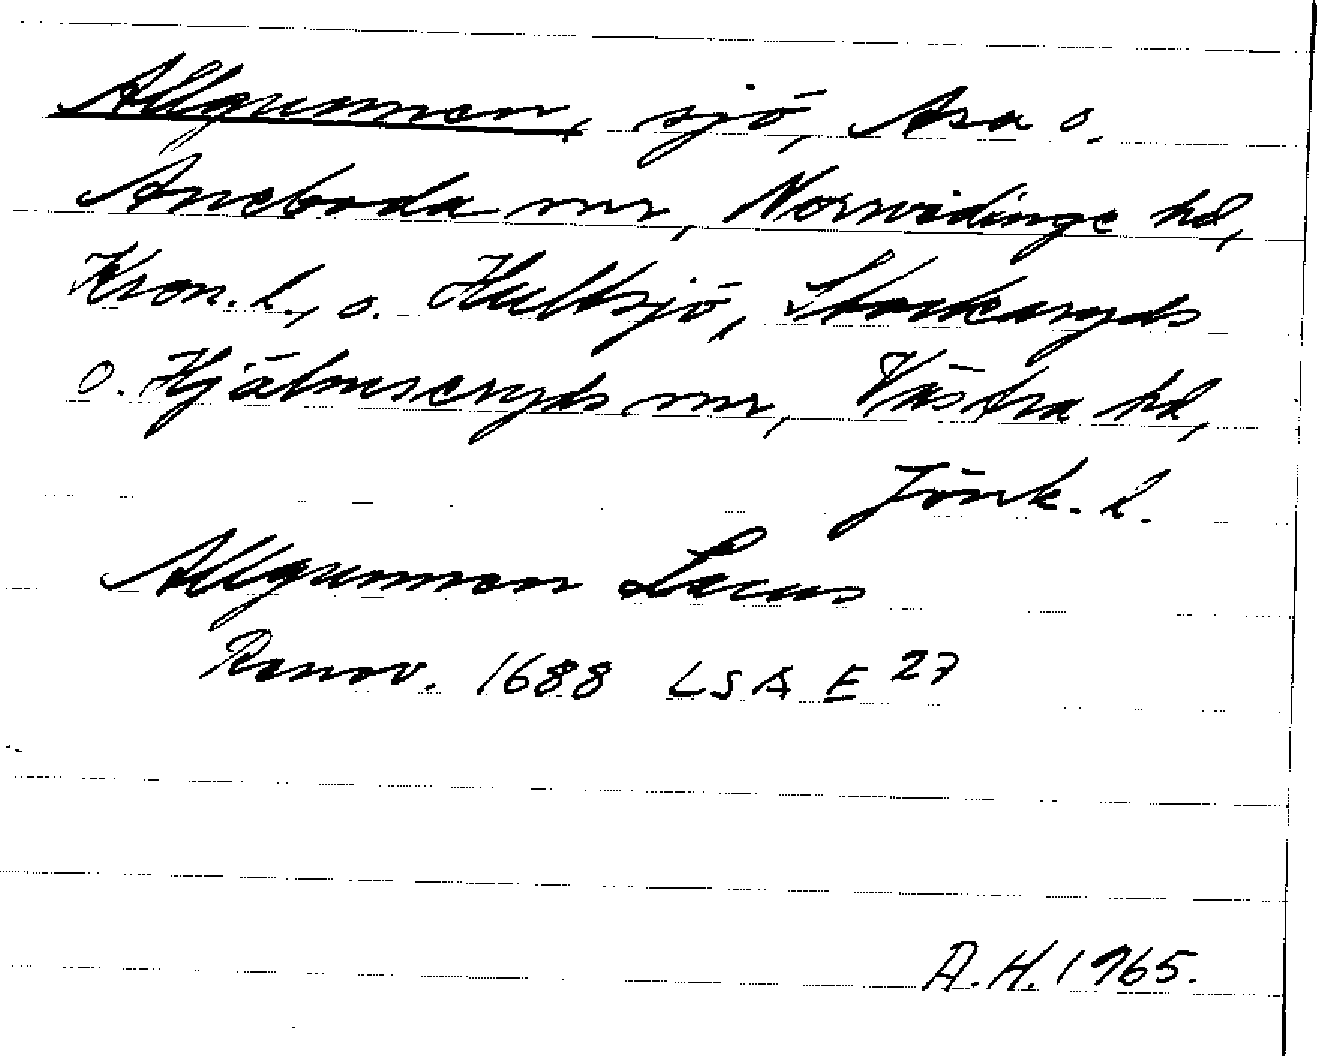 Allgunnen, sjö, Asa o.
Aneboda snr, Norrvidinge hd,
Kron. l., o. Hultsjö, Stockaryds
o. Hjälmseryds snr, Västra hd,
Jönk. l.
Allgunnen Lacus
Ranov. 1688 LSA E 27
A.H. 1965.